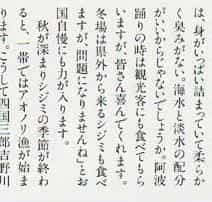 は、身がいっぱい詰まっていて柔らか
く臭みがない。海水と淡水の配分
がいいからじゃないでしょうか。阿波
踊りの時は観光客にも食べてもら
いますが、皆さん喜んでくれます。
冬場は県外から来るシジミも食べ
ますが、問題になりませんね」とお
国自慢にも力が入ります。
秋が深まりシジミの季節が終わ
ると、一帯ではアオノリ漁が始ま
ります。こうして四国三郎吉野川